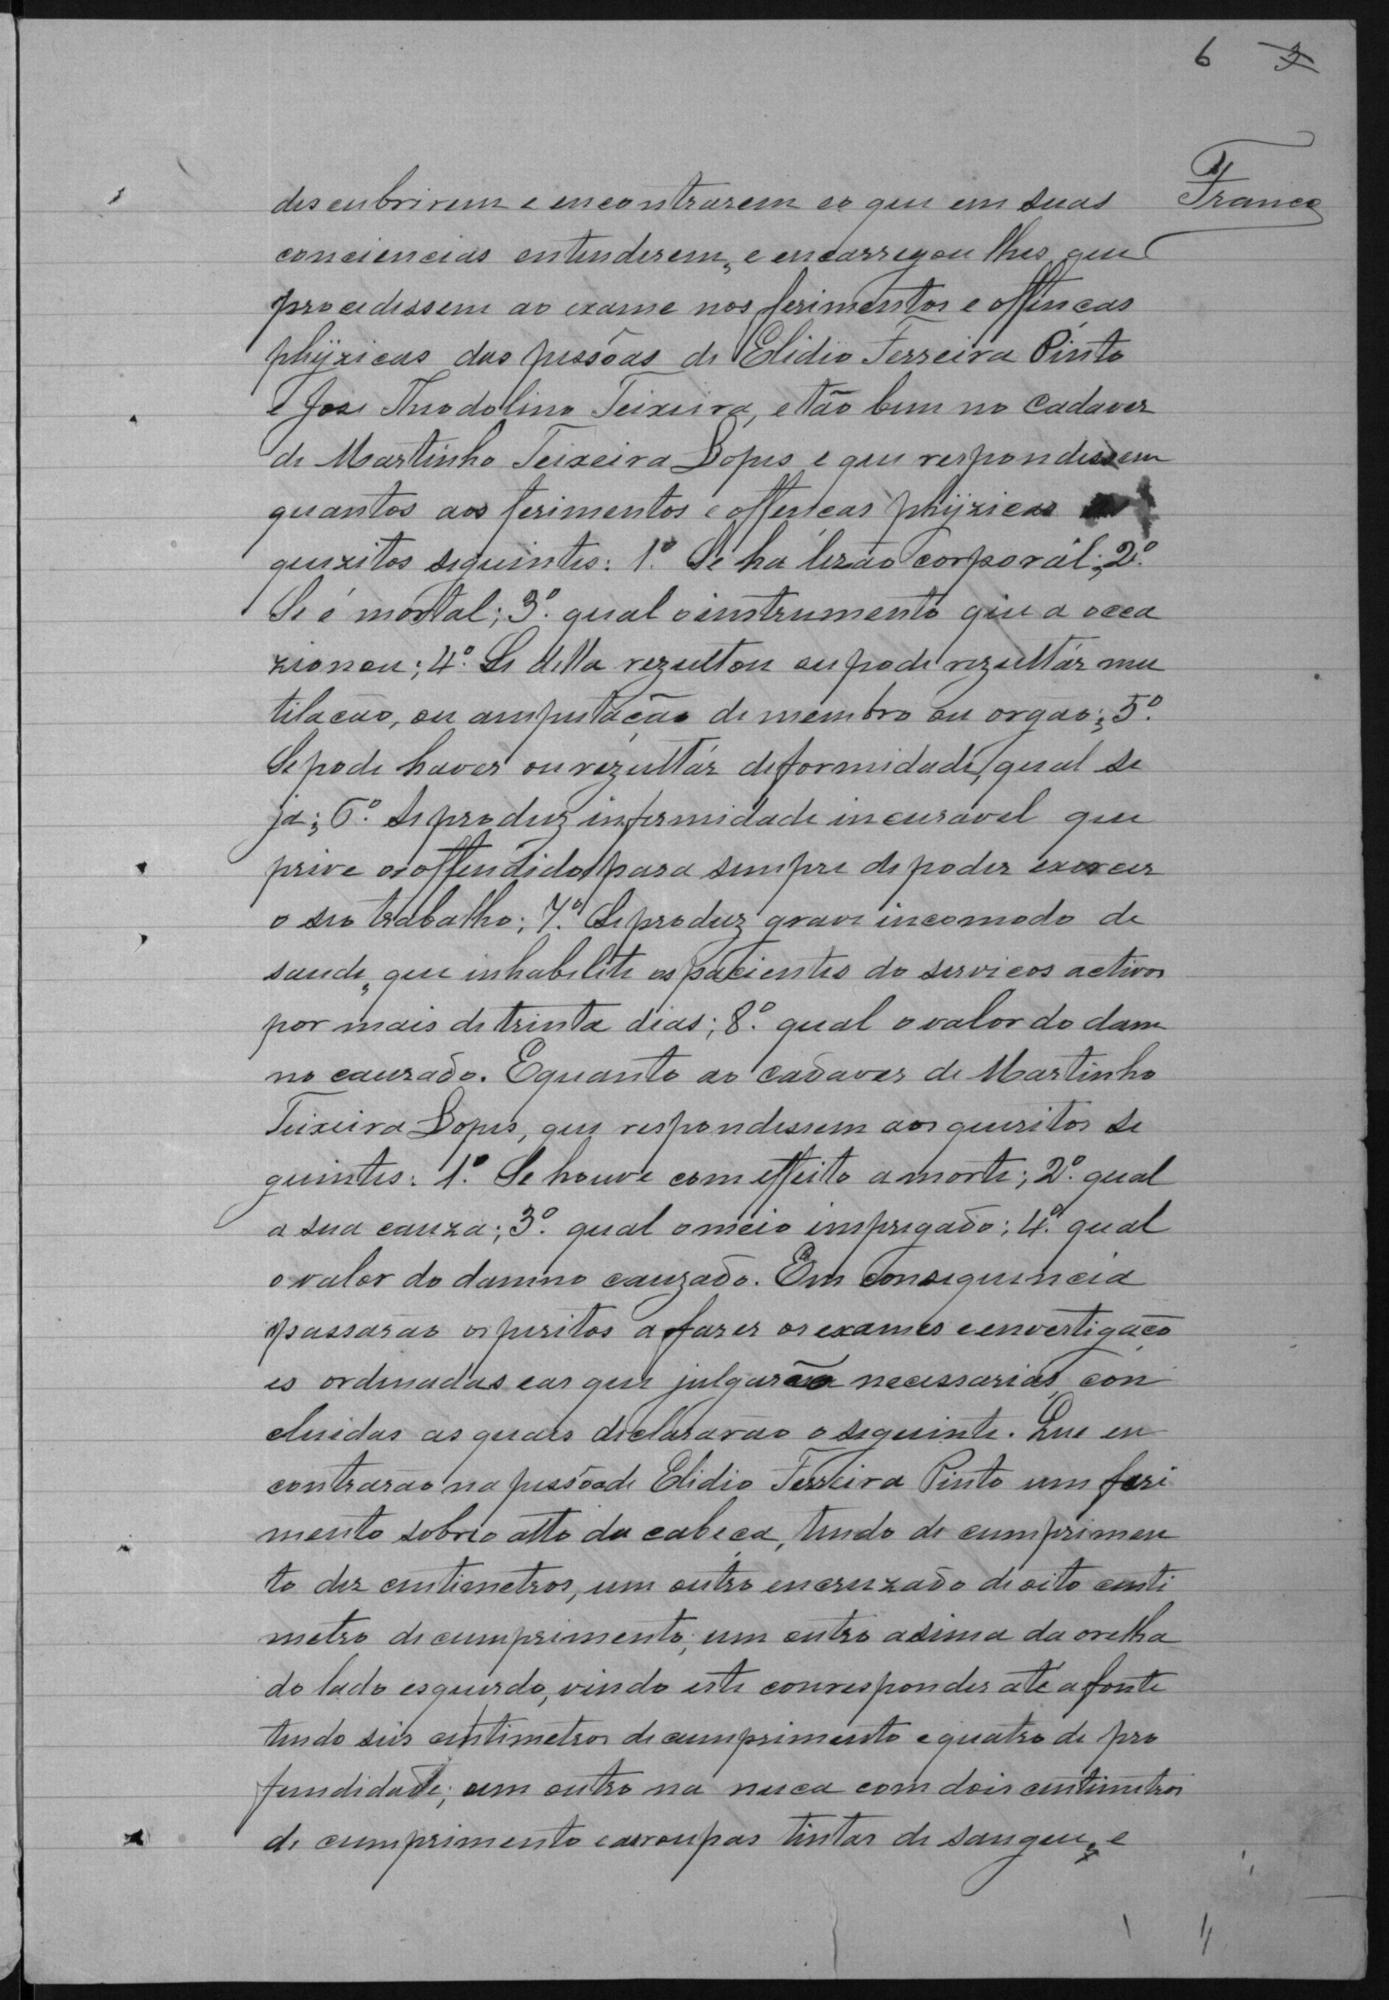 6 3
Franco
descubrirem e encontrarem eo que em suas
conciencias entenderem, e encarregou lhes que
procedessem ao exame nos ferimentos e offencas
phÿzicas das pessôas de Elidio Ferreira Pinto
e Jose Theodolino Teixeira, e tão bem no Cadaver
de Martinho Teixeira Lopes e que respondessem
quantos aos ferimentos e offencas phÿzicas
quezitos seguintes: 1º. Se ha lezão corporál; 2º.
Se é mortal; 3º. qual o instrumento que a occa
zionou; 4º. Se della rezultou ou pode rezultár mu
tilacão, ou amputação de membro ou orgao; 5º.
Se pode haver ou rezultár deformidade, qual se
ja; 6º. Se produz infermidade incuravel que
prive o offendido para sempre de poder exercer
o seo trabalho; 7º. Se produz grave incomodo de
saude, que inhabelite os pacientes do servicos activos
por mais de trinta dias; 8º. qual o valor do dam
no cauzado. E quanto ao cadaver de Martinho
Teixeira Lopes, que respondessem aos quezitos se
guintes: 1º. Se houve com effeito a morte; 2º. qual
a sua cauza; 3º. qual o meio impregado; 4º. qual
o valor do damno cauzado. Em consequencia
passarão os peritos a fazer os exames e envestigacõ
es ordenadas e as que julgarão necessarias, con
cluidas as quaes declararão o seguinte. Que en
contrarão na pessôa de Elidio Ferreira Pinto um feri
mento sobre o alto da cabeca, tendo de cumprimen
to dez centimetros, um outro encruzado de oito centi
metro de cumprimento; um outro asima da orelha
do lado esquerdo, vindo este corresponder até a fonte
tendo seis centimetros de cumprimento e quatro de pro
fundidade; um outro na nuca com dois centimetros
de cumprimento e as roupas tintas de sangue, e